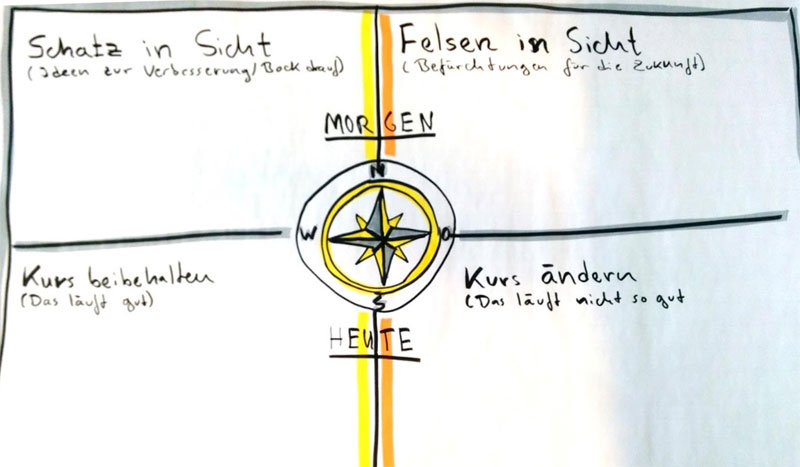 Schatz in Sicht
(Ideen zur Verbesserung/Bock drauf)
Felsen in Sicht
(Befürchtungen für die Zukunft)
MORGEN
N
W
O
S
Kurs beibehalten
(Das läuft gut)
Kurs ändern
(Das läuft nicht so gut
HEUTE